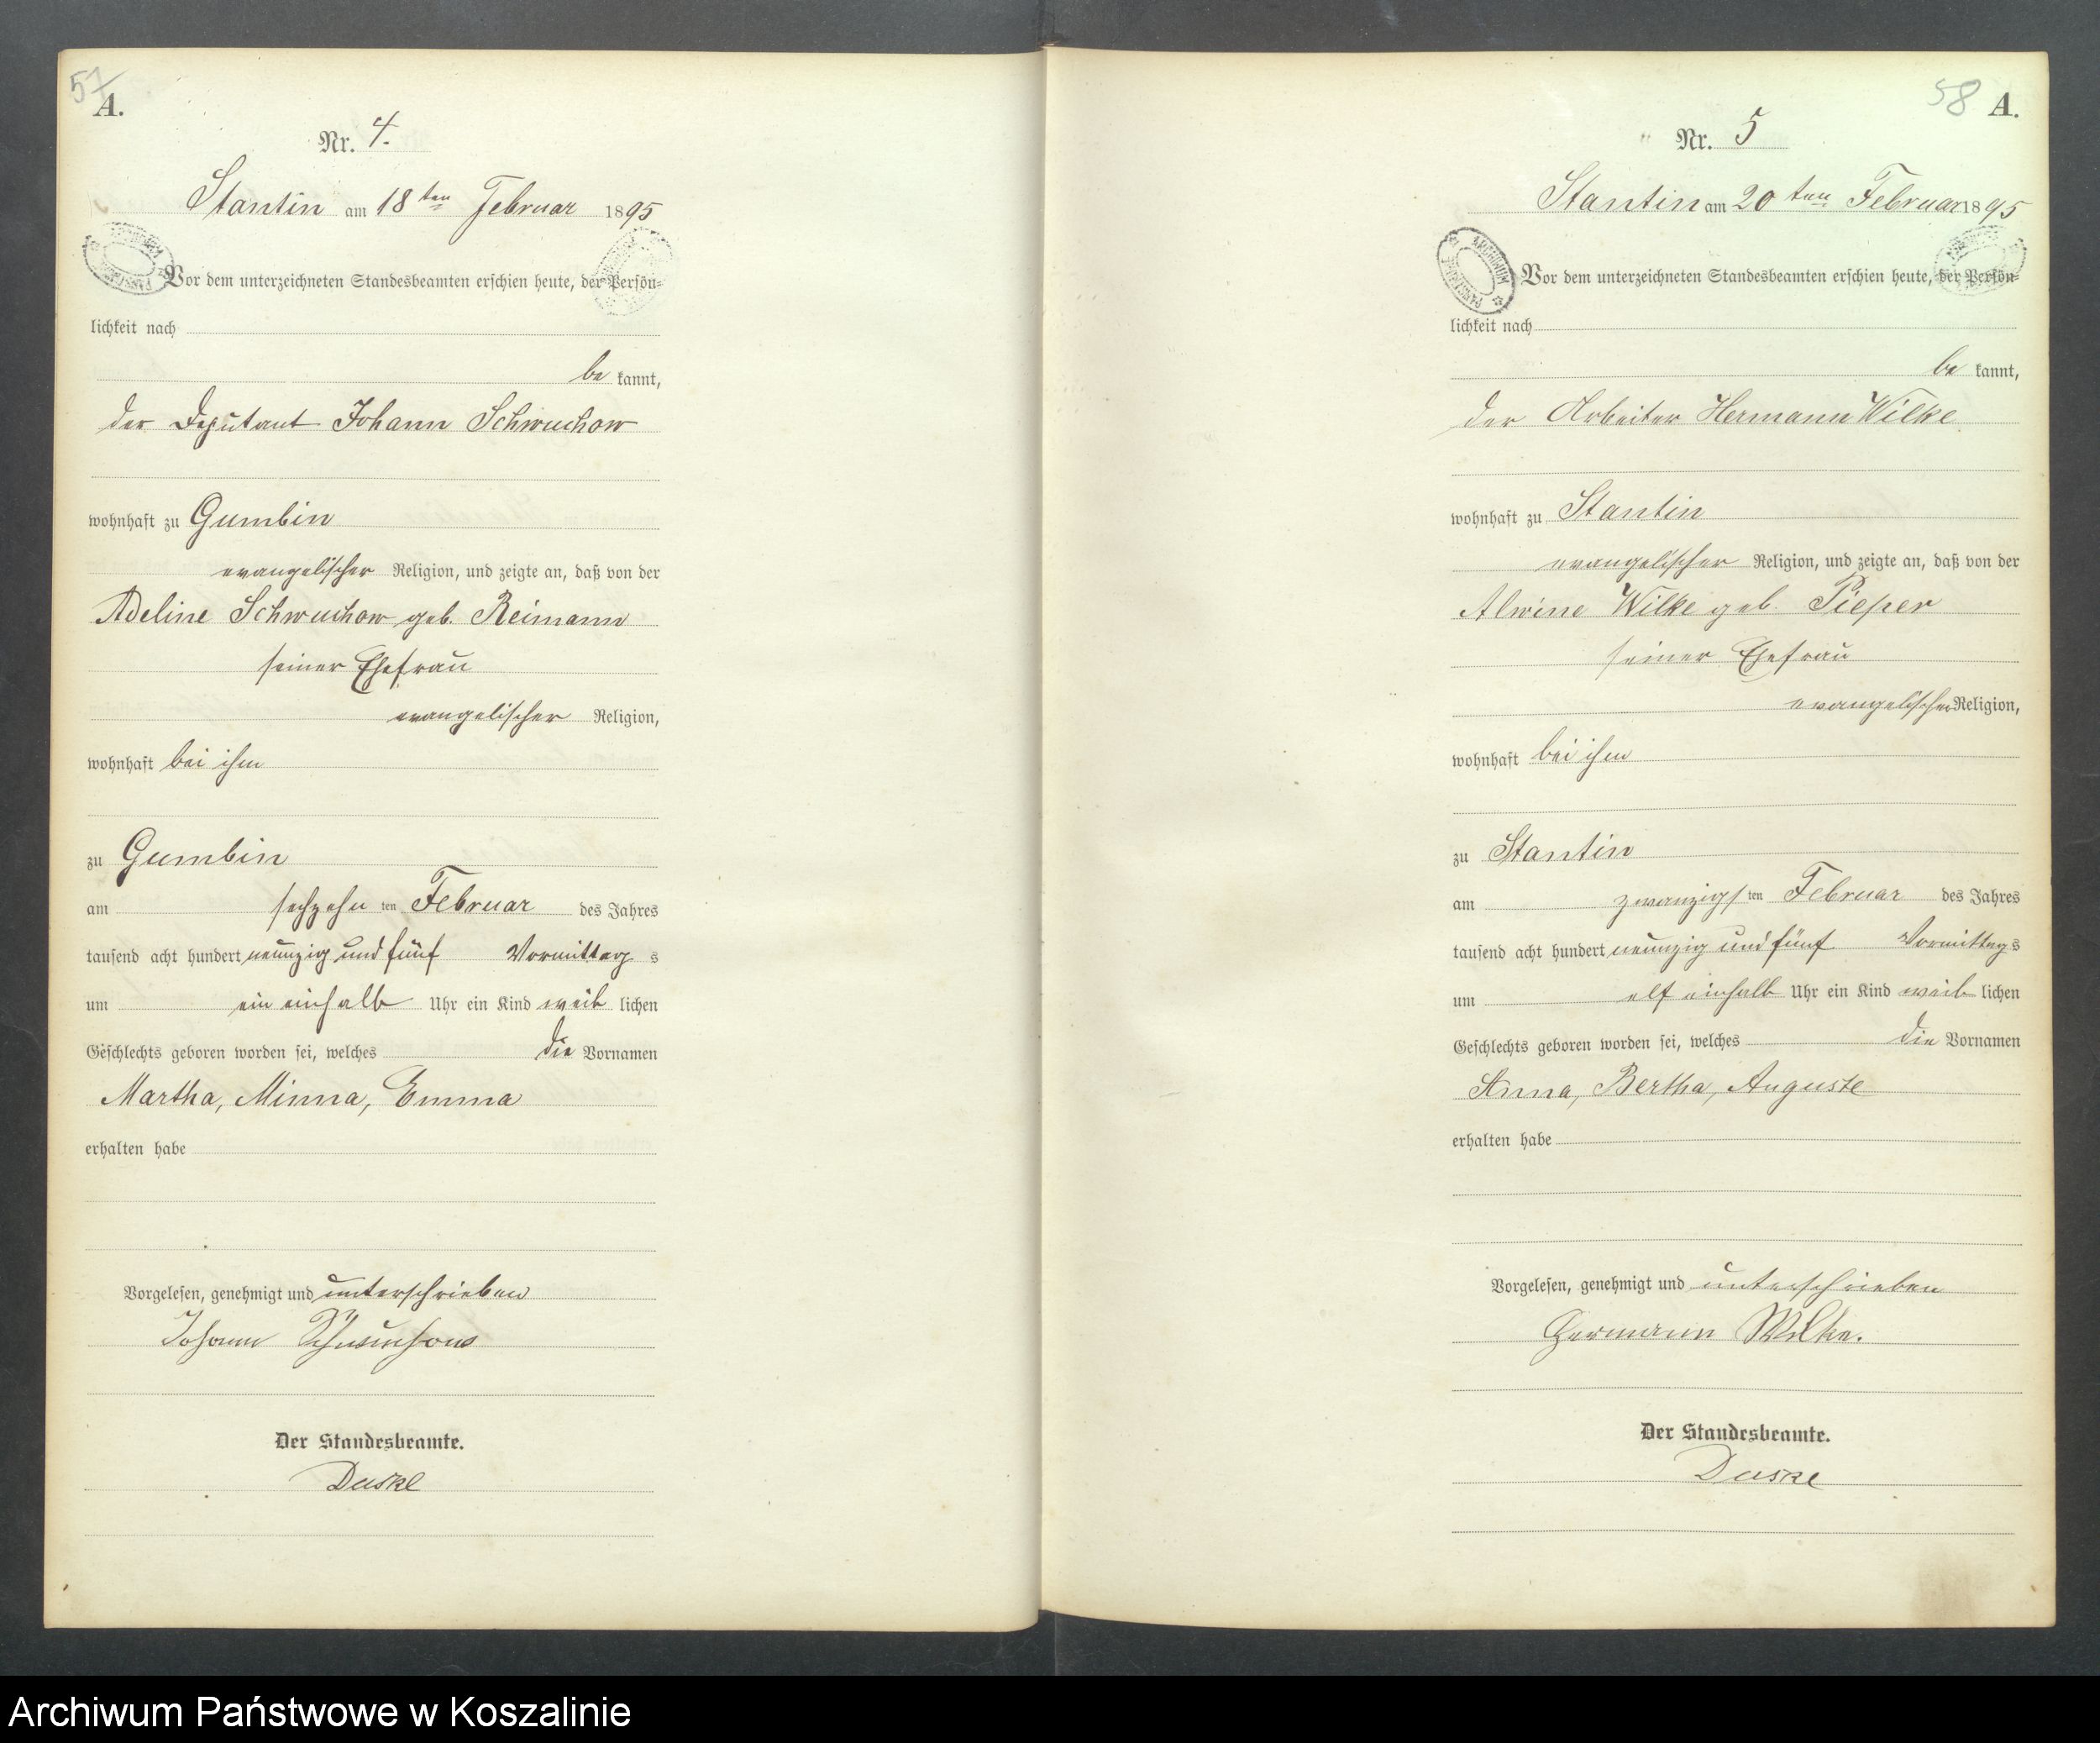 57
A.
Nr. 4.
Stantin am 18ten Februar 1895
Vor dem unterzeichneten Standesbeamten erschien heute, der Persön-
lichkeit nach
be kannt,
der Deputant Johann Schwuchow
wohnhaft zu Gumbin
evangelischer Religion, und zeigte an, daß von der
Adeline Schwuchow geb. Reimann
seiner Ehefrau
evangelischer Religion,
wohnhaft bei ihm
zu Gumbin
am sechzehn ten Februar des Jahres
tausend acht hundert neunzig und fünf Vormittag s
um ein einhalb Uhr ein Kind weib lichen
Geschlechts geboren worden sei, welches die Vornamen
Martha, Minna, Emma
erhalten habe
Vorgelesen, genehmigt und unterschrieben
Johann Schwuchow
Der Standesbeamte.
Daske
58 A.
Nr. 5
Stantin am 20ten Februar 1895
ARCHIWUM PAŃSTWOWE
Vor dem unterzeichneten Standesbeamten erschien heute, der Persön-
lichkeit nach
be kannt,
der Arbeiter Hermann Wilke
wohnhaft zu Stantin
evangelischer Religion, und zeigte an, daß von der
Alwine Wilke geb. Pieper
seiner Ehefrau
evangelischer Religion,
wohnhaft bei ihm
zu Stantin
am zwanzigs ten Februar des Jahres
tausend acht hundert neunzig und fünf Vormittag s
um elf einhalb Uhr ein Kind weib lichen
Geschlechts geboren worden sei, welches die Vornamen
Anna, Bertha, Auguste
erhalten habe
Vorgelesen, genehmigt und unterschrieben
Hermann Wilke.
Der Standesbeamte.
Daske
Archiwum Państwowe w Koszalinie